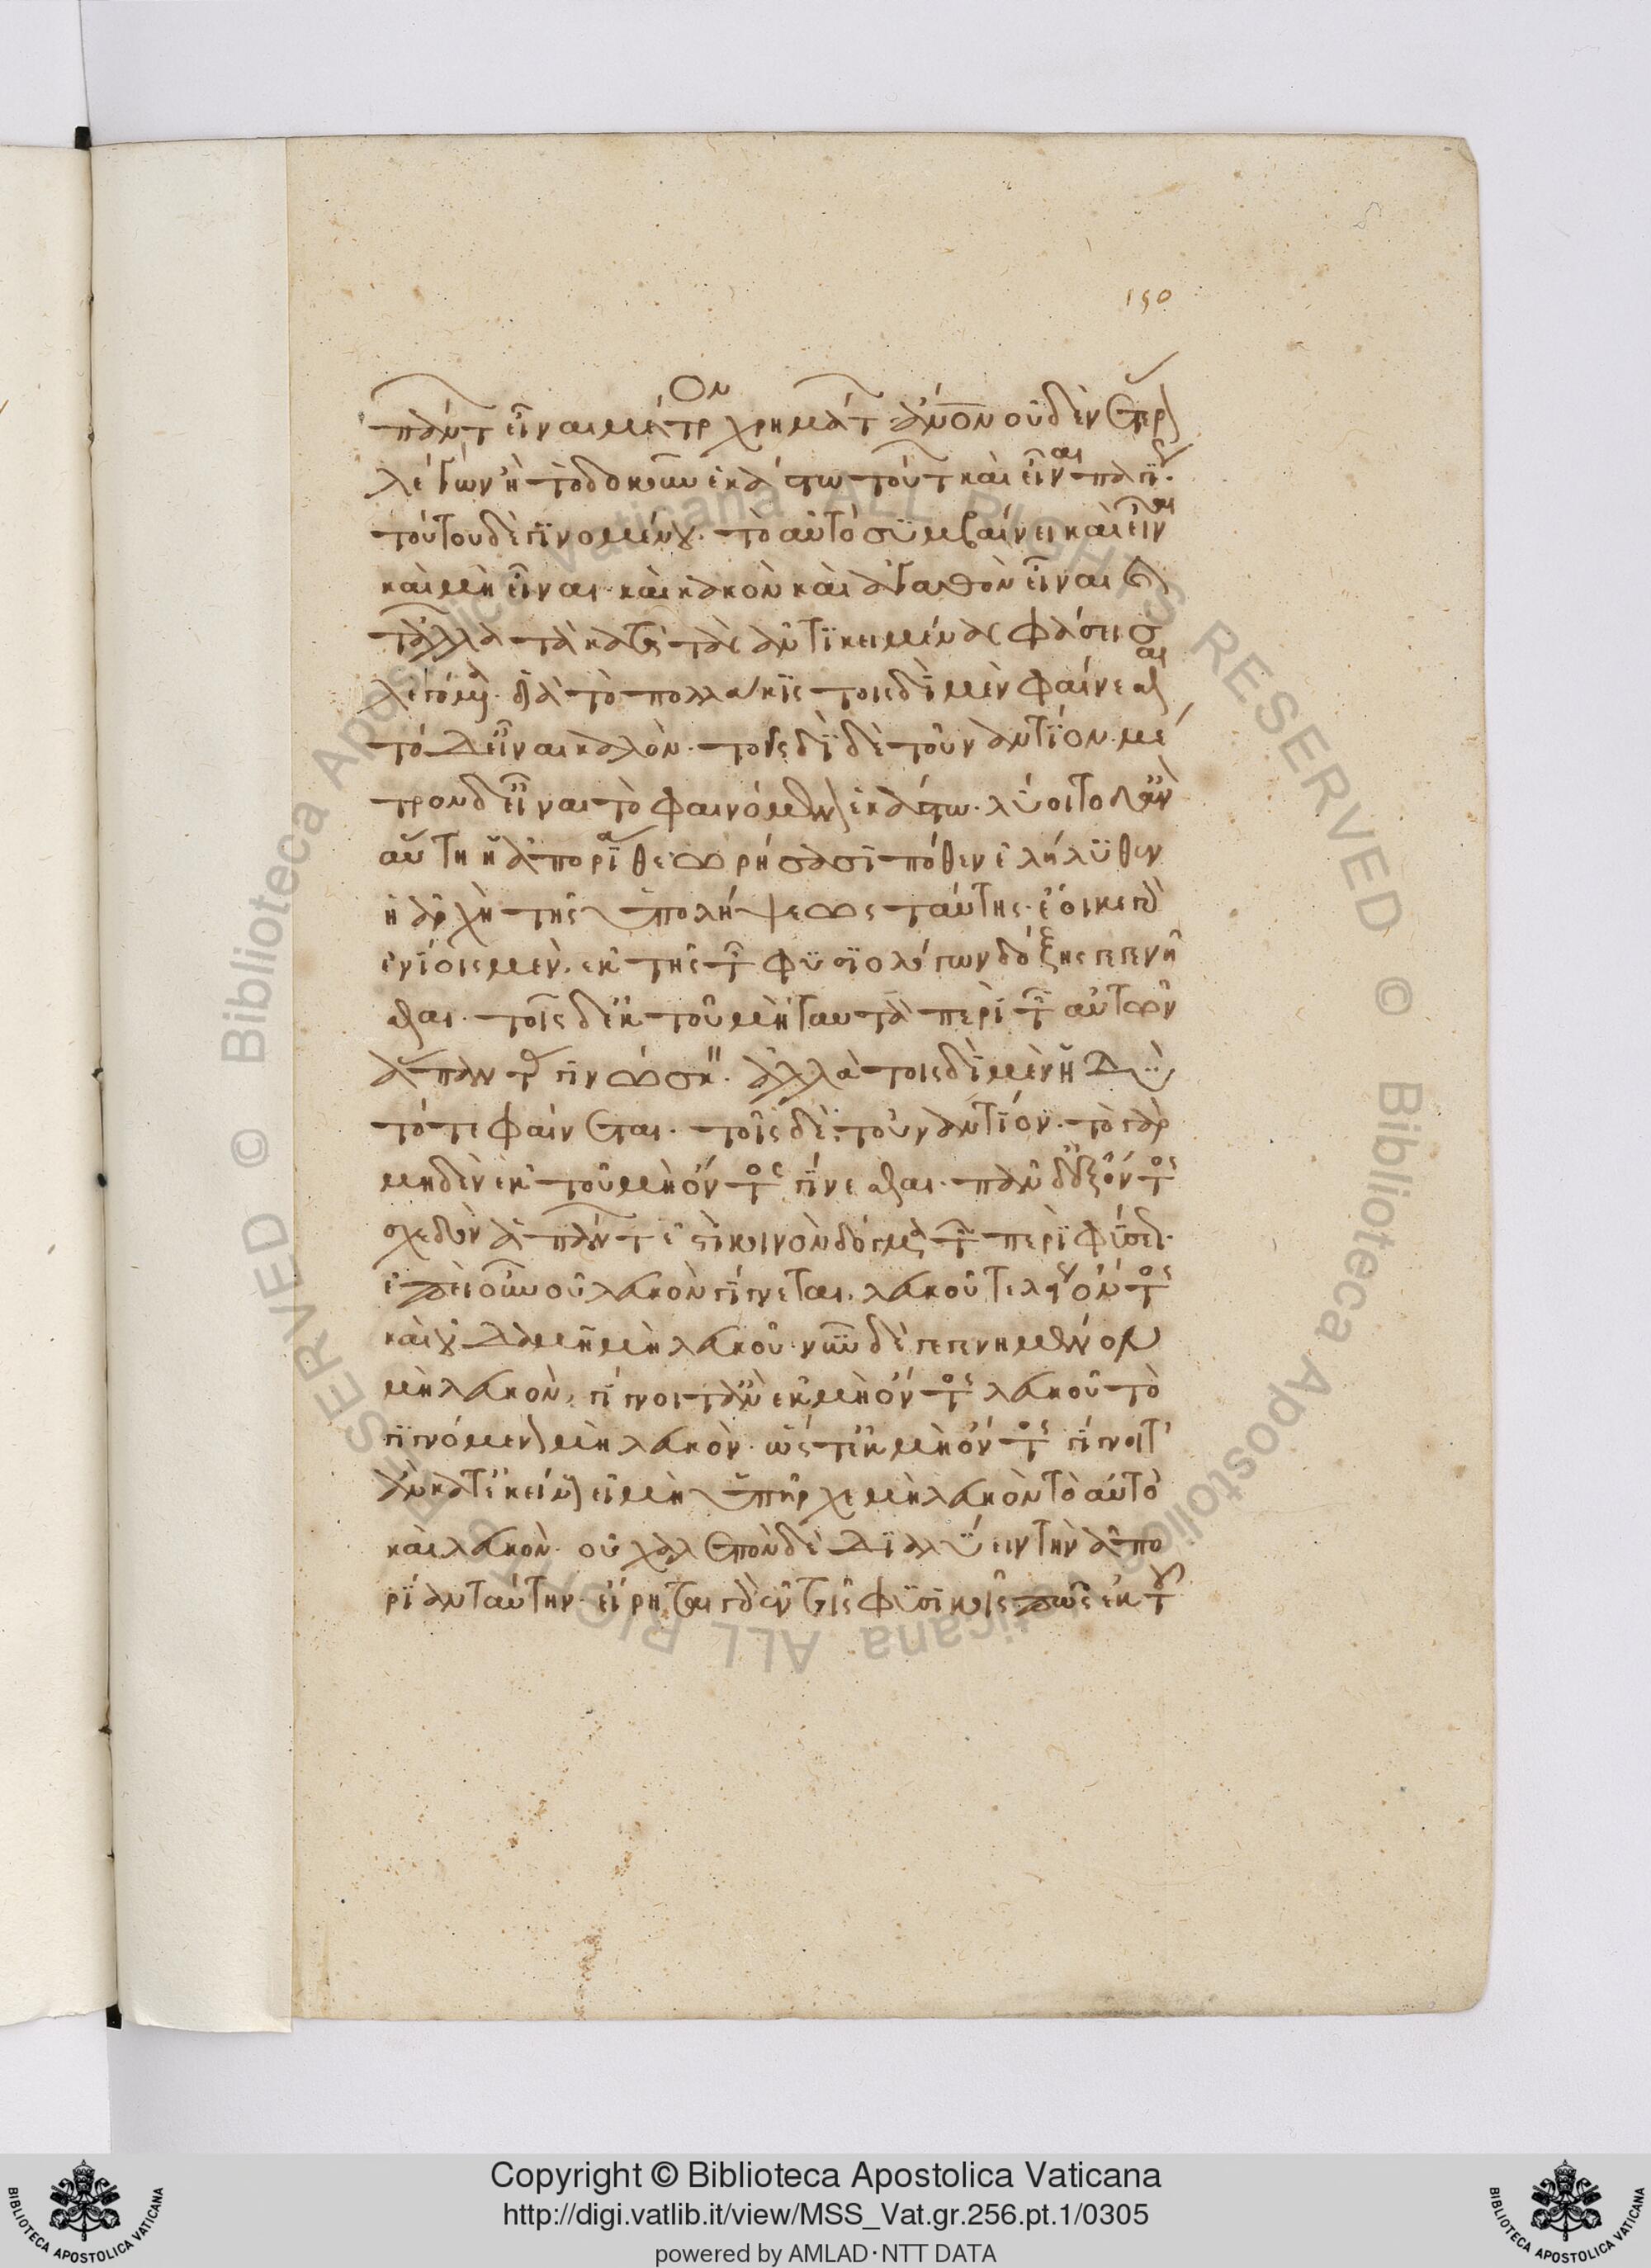 πάντων εἶναι μέτρον χρημάτων ἄνον οὐδὲν ἕτερον
λέγων ἢ τὸ δοκοῦν ἑκάστω τοῦτο καὶ εἶναι παγίως·
τούτου δὲ γινομένου· τὸ αὐτὸ συμβαίνει καὶ εἶναι
καὶ μὴ εἶναι· καὶ κακὸν καὶ ἀγαθὸν εἶναι καὶ
τἄλλα τὰ κατὰ τὰς ἀντικειμένας φάσεις
λεγόμενα· διὰ τὸ πολλάκις τοισδὶ μὲν φαίνεσθαι
τόδε εἶναι καλὸν· τοῖς δὶ δὲ τοὐναντίον· μέ
τρον δ' εἶναι τὸ φαινόμενον ἑκάστω· λύοιτο δ' ἂν
αὕτη ἡ ἀπορία θεωρήσασι πόθεν ἐλήλυθεν
ἡ ἀρχὴ τῆς ὑπολήψεως ταύτης· ἔοικε γὰρ
ἐνίοις μὲν· ἐκ τῆς τῶν φυσιολόγων δόξης γεγενῆ
σθαι· τοῖς δ' ἐκ τοῦ μὴ ταυτὰ περὶ τῶν αὐτῶν
ἅπαντας γινώσκειν· ἀλλὰ τοισδὶ μὲν ἡδὺ
τό τε φαίνεται· τοῖς δὲ τοὐναντίον· τὸ γὰρ
μηδὲν ἐκ τοῦ μὴ ὄντος γίνεσθαι· πᾶν δ' ἐξ ὄντος
σχεδὸν ἁπάντων ἐστὶ κοινὸν δόγμα τῶν περὶ φύσεως·
ἐπεὶ οὖν οὐ λευκὸν γίγνεται· λευκοῦ τελέως ὄντος
καὶ οὐδαμῆ μὴ λευκοῦ· νῦν δὲ γεγενημένον
μὴ λευκὸν, γίγνοιτ' ἂν ἐκ μὴ ὄντος λευκοῦ τὸ
γιγνόμενον μὴ λευκὸν· ὥστ' ἐκ μὴ ὄντος γίγνοιτ'
ἂν κατ' ἐκείνους εἰ μὴ ὑπῆρχε μὴ λευκὸν τὸ αὐτὸ
καὶ λευκὸν· οὐ χαλεπὸν δὲ διαλύειν τὴν ἀπο
ρίαν ταύτην· εἴρηται γὰρ ἐν τοῖς φυσικοῖς πῶς ἐκ τοῦ
Copyright © Biblioteca Apostolica Vaticana
http://digi.vatlib.it/view/MSS_Vat.gr.256.pt.1/0305
powered by AMLAD·NTT DATA